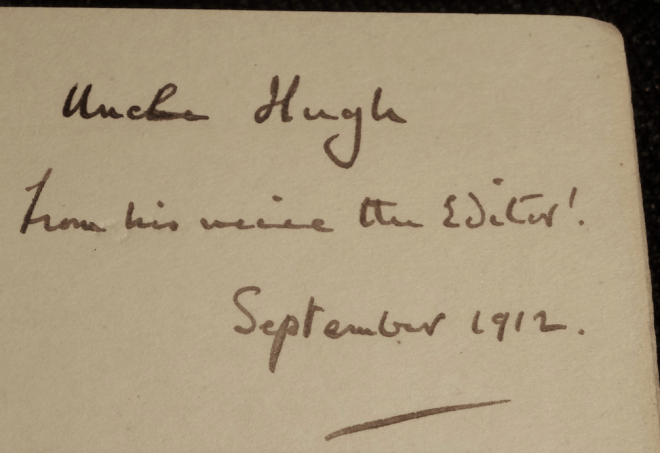 Uncle Hugh
from his neice the Editor!
September 1912.